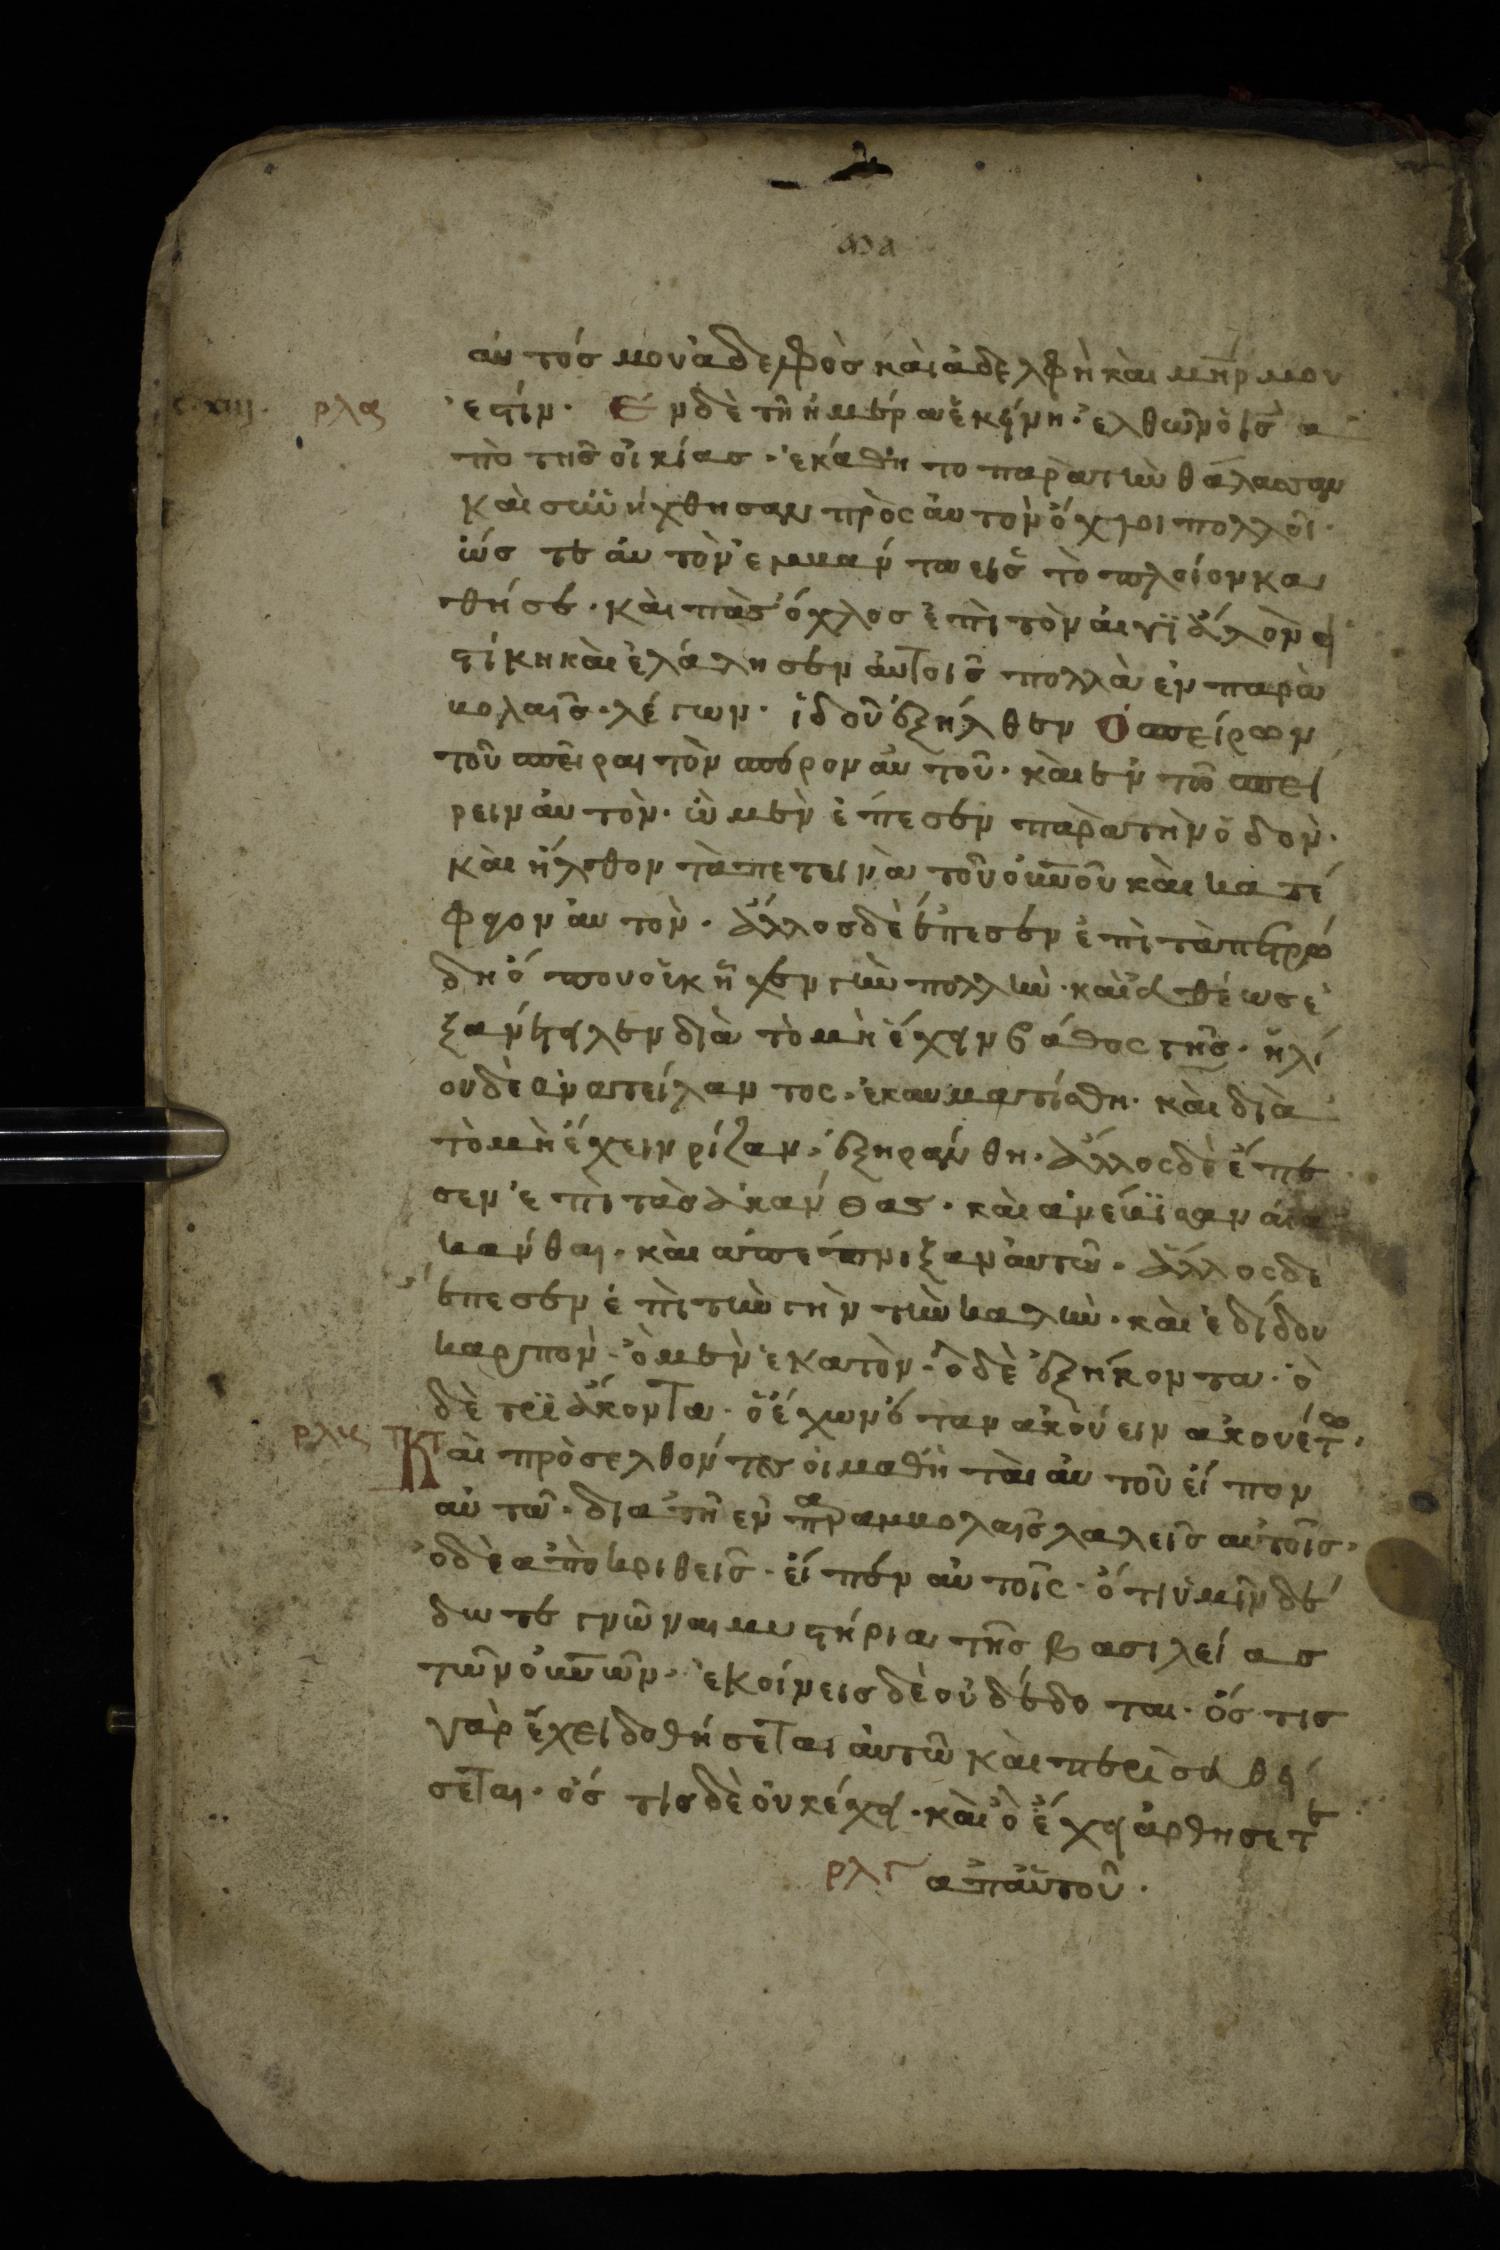 αὐτόσ μου ἀδελφὸσ καὶ ἀδελφὴ καὶ μη̅ρ μου
c. xiij. ρλα ἐστίν. Ἐν δὲ τῆ ἡμέρα ἐκείνη. ἐλθὼν ὁ ι̅ς̅ ἀ
πὸ τῆσ οἰκίασ. ἐκάθητο παρὰ τὴν θάλασσαν
καὶ συνήχθησαν πρὸς αὐτὸν ὄχλοι πολλοὶ.
ὥστε αὐτὸν ἐμμάντα εισ τὸ πλοίον κα
θήσε. καὶ πὰσ ὄχλοσ ἐπὶ τὸν αιγϊάλὸν εἱ
στίκη καὶ ἐλάλησεν αὐτοισ πολλὰ ἐν παρα
βολαῖσ. λέγων. ἰδοῦ ἐξήλθεν ὁ σπείρων
τοῦ σπεῖραι τὸν σπόρον αὐτοῦ. καὶ ἐν τῶ σπεί
ρειν αὐτὸν. ὃ μὲν ἔπεσεν παρὰ τὴν ὁδὸν.
καὶ ήλθον τὰ πετεινὰ τοῦ ου̅νοῦ καὶ κατέ
φαγον αὐτὸν. ἄλλοσ δὲ ἔπεσεν ἐπὶ τὰ πετρώ
δη ὅπου οὐκ ἤχεν γὴν πολλὴν. καὶ εὐθέωσ ἐ
ξανέτειλεν διὰ τὸ μὴ ἔχην βάθος γῆσ. ἡλί
ου δὲ ἀνατείλαντος. ἐκαυματίσθη. καὶ διὰ
τὸ μὴ ἔχειν ρίζαν. ἐξηράνθη. ἄλλος δὲ ἔπε
σεν ἐπὶ τὰσ ἀκάνθασ. καὶ ἀνέβϊσαν αι α
κάνθαι. καὶ ἀπέπνιξαν αὐτὼ. ἄλλος δὲ
ἔπεσεν ἐπὶ τὴν γὴν τὴν καλὴν. καὶ ἐδίδου
καρπὸν. ὃ μὲν ἑκατὸν. ὃ δὲ ἐξήκοντα. ὃ
δὲ τρϊάκοντα. ὁ ἔχων ὄτα νακούειν ακουέτω.
ρλβ Καὶ πρὸσελθόντεσ οἱ μαθηταὶ αὐτοῦ εἶπον
αὐτῶ. δια τῆ ἐν παραμβολαῖσ λαλεῖσ αυτοῖσ.
ὁ δὲ ἀποκριθεῖσ. εἶπεν αὐτοῖς. ὅτι ὑμῖν δέ
δωτε γνῶναι μυστήρια τῆσ βασιλείασ
τῶν ου̅νῶν. ἐκοίνεισ δὲ οὐ δέδοται. ὅστισ
γὰρ ἔχει δοθήσεται ἀυτῶ καὶ περϊσευθή
σεται. ὅστισ δὲ οὐκ έχη. καὶ ὃ ἔχη ἀρθησετε
ρλγ ἀπ αὐτοῦ.